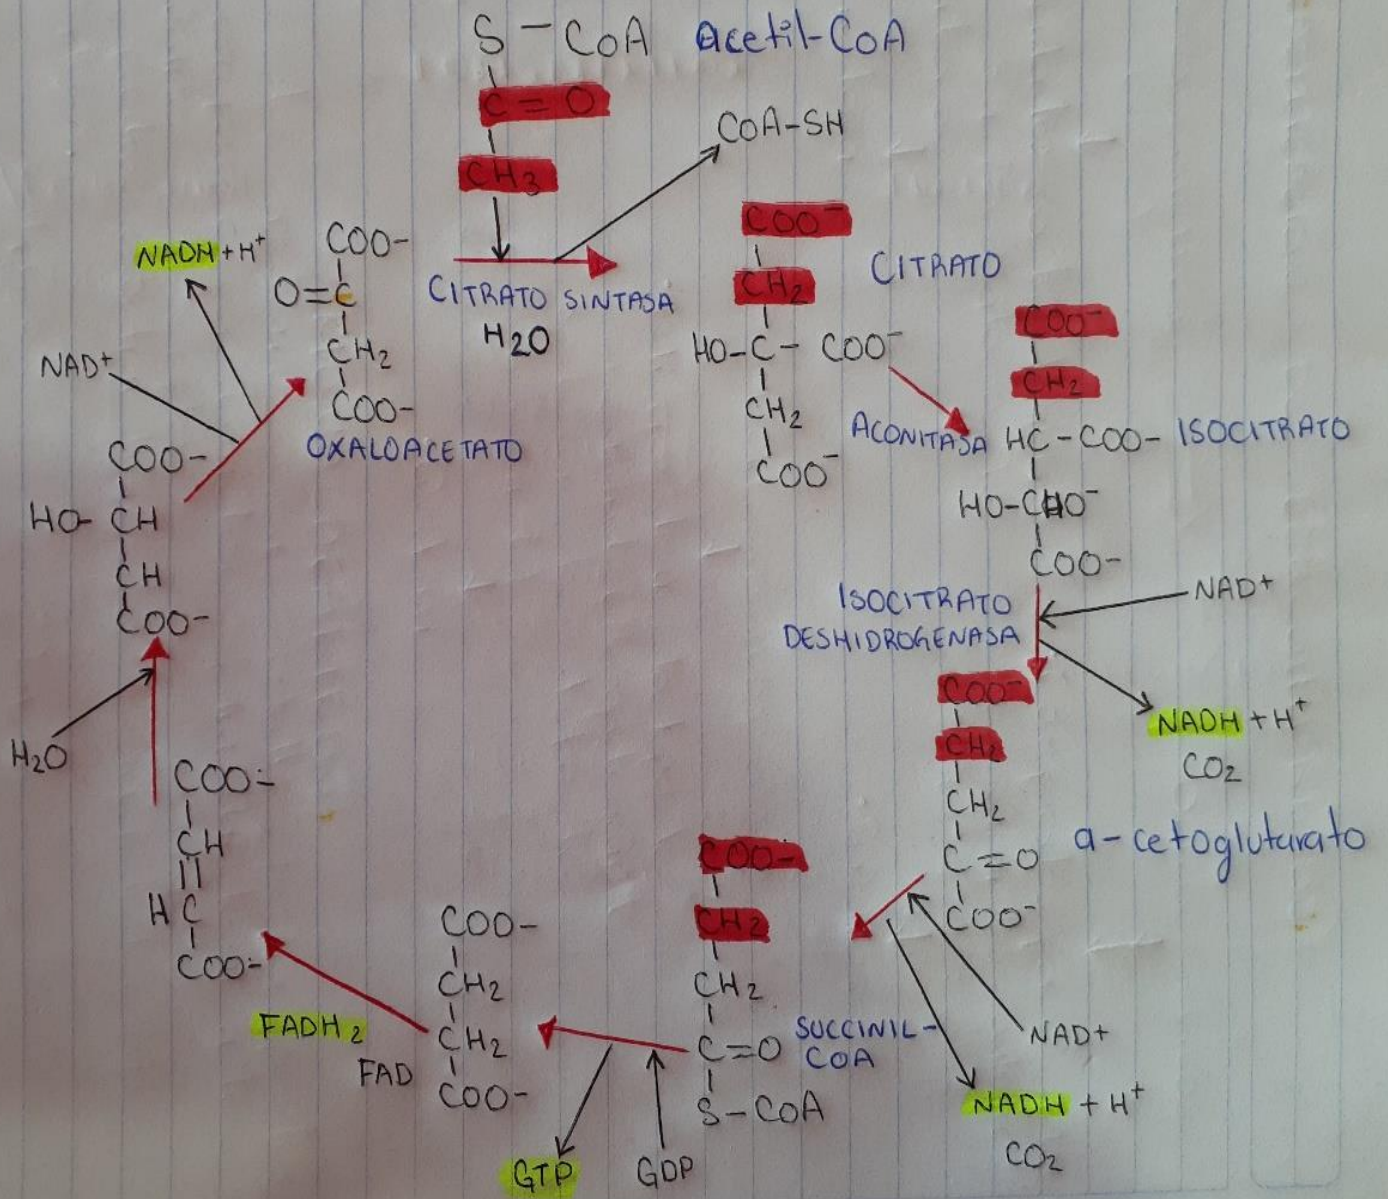 S - CoA acetil-CoA
C = O
CH3
CoA-SH
CITRATO SINTASA
H2O
COO⁻
CH2
HO-C- COO⁻
CH2
COO⁻
CITRATO
ACONITASA
COO⁻
CH2
HC-COO- ISOCITRATO
COO-
ISOCITRATO
DESHIDROGENASA
NAD+
NADH + H⁺
CO2
COO⁻
CH2
CH2
C=O
COO⁻
a-cetogluturato
NAD+
NADH + H⁺
CO2
COO-
CH2
CH2
C=O
S-CoA
SUCCINIL-
COA
GDP
GTP
COO-
CH2
CH2
COO-
FADH2
FAD
COO-
CH
HC
COO-
H2O
COO-
HO- CH
CH
COO-
NAD+
NADH+H⁺
COO-
O=C
CH2
COO-
OXALOACETATO